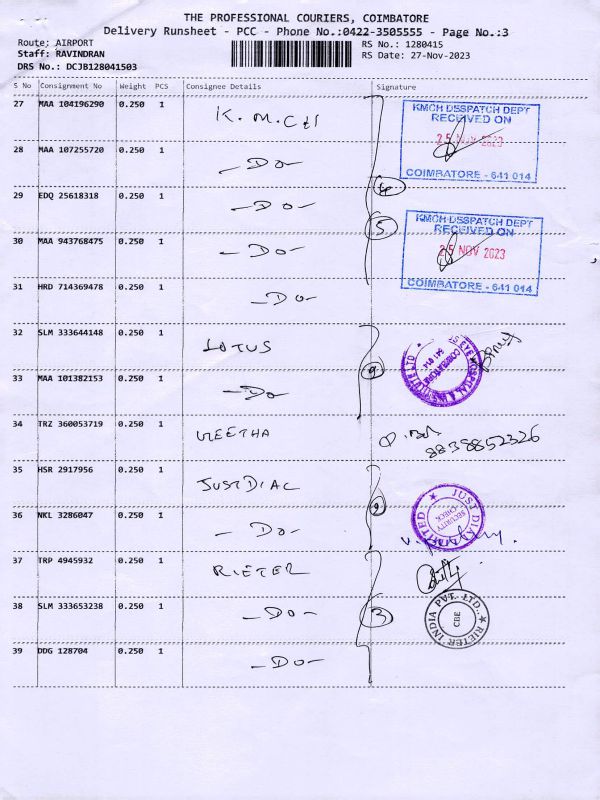 THE PROFESSIONAL COURIERS, COIMBATORE
Delivery Runsheet - PCC - Phone No.:0422-3505555 - Page No.:3
Route: AIRPORT RS No.: 1280415
Staff: RAVINDRAN RS Date: 27-Nov-2023
DRS No.: DCJB128041503
S No Consignment No Weight PCS Consignee Details Signature
27 MAA 104196290 0.250 1 K.M.CH
KMCH DESPATCH DEPT
RECEIVED ON
25 NOV 2023
COIMBATORE - 641 014
28 MAA 107255720 0.250 1 -DO-
29 EDQ 25618318 0.250 1 -DO-
4
30 MAA 943768475 0.250 1 -DO-
5
KMCH DESPATCH DEPT
RECEIVED ON
25 NOV 2023
COIMBATORE - 641 014
31 HRD 714369478 0.250 1 -DO-
32 SLM 333644148 0.250 1 LOTUS
EYE HOSPITAL & INSTITUTE LTD
COIMBATORE
641 014
33 MAA 101382153 0.250 1 -DO-
34 TRZ 360053719 0.250 1 GEETHA
8838852326
35 HSR 2917956 0.250 1 JUSTDIAL
JUST DIAL LIMITED
SECURITY
CHECK
36 NKL 3286047 0.250 1 -DO-
37 TRP 4945932 0.250 1 RIETER
38 SLM 333653238 0.250 1 -DO-
3
RIETER INDIA PVT. LTD.
CBE
39 DDG 128704 0.250 1 -DO-